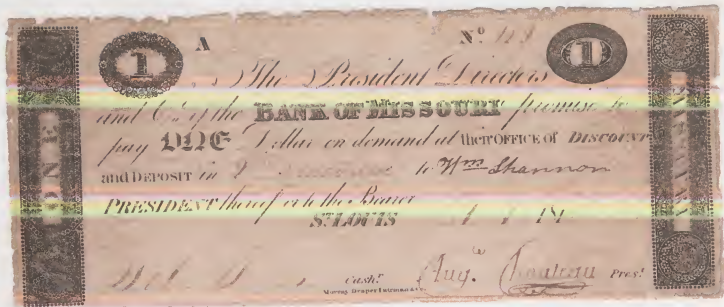 1 A Nº 1
The President Directors
and Cº. of the BANK OF MISSOURI promise to
pay ONE Dollar on demand at their OFFICE OF DISCOUNT
and DEPOSIT in to Wm Shannon
PRESIDENT thereof or to the Bearer
ST. LOUIS 181
Cashr. Augᵉ Chouteau Prest.
Murray Draper Fairman & Co.
ONE